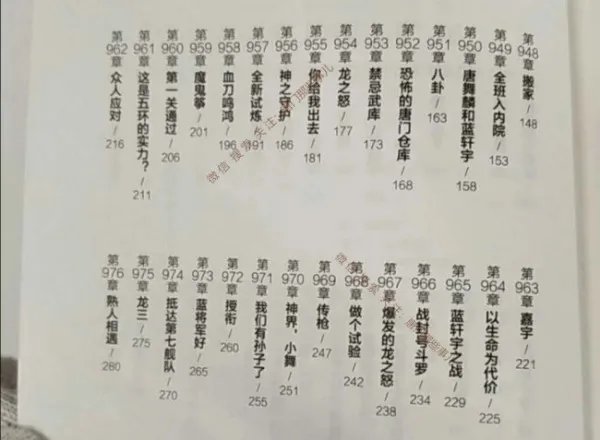 第948章 搬家 / 148
第949章 全班入内院 / 153
第950章 唐舞麟和蓝轩宇 / 158
第951章 八卦 / 163
第952章 恐怖的唐门仓库 / 168
第953章 禁忌武库 / 173
第954章 龙之怒 / 177
第955章 你给我出去 / 181
第956章 神之守护 / 186
第957章 全新试炼 / 191
第958章 血刀鸣鸿 / 196
第959章 魔鬼筝 / 201
第960章 第一关通过 / 206
第961章 这是五环的实力？ / 211
第962章 众人应对 / 216
第963章 嘉宇 / 221
第964章 以生命为代价 / 225
第965章 蓝轩宇之战 / 229
第966章 战封号斗罗 / 234
第967章 爆发的龙之怒 / 238
第968章 做个试验 / 242
第969章 传枪 / 247
第970章 神界，小舞 / 251
第971章 我们有孙子了 / 255
第972章 授衔 / 260
第973章 蓝将军好 / 265
第974章 抵达第七舰队 / 270
第975章 龙三 / 275
第976章 熟人相遇 / 280
微信搜索关注：
微信搜索关注：